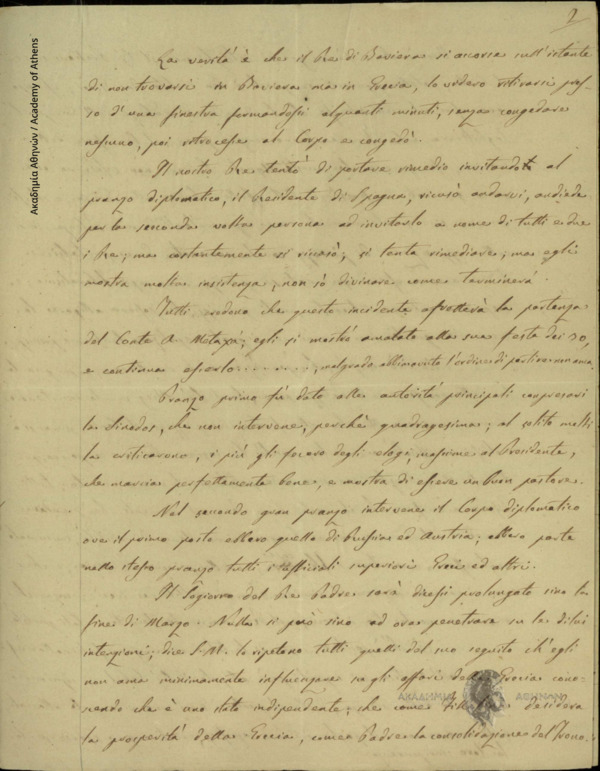 2
La verità è che il Re di Baviera si accorse sull'istante
di non trovarsi in Baviera ma in Grecia, lo videro ritirarsi pres-
so d'una finestra fermandosi alquanti minuti, senza congedare
nessuno, poi retrocesse al Corpo e congedò.
Il nostro Re tentò di portare rimedio invitando al
pranzo diplomatico, il Residente di Spagna, ricusò andarvi, andiede
per la seconda volta persona ad invitarlo a nome di tutti e due
i Re; ma costantemente si ricusò; si tenta rimediare, ma egli
mostra molta insistenza, non sò divinare come terminerà.
Tutti credono che questo incidente affretterà la partenza
del Conte A. Metaxà; egli si mostrò amalato alla sua festa dei 30,
e continua esserlo malgrado l'ordine di partire
Pranzo primo fù dato alle autorità principali compresovi
la Sinodos, che non intervenne, perchè quadragesima; al solito molti
la criticarono, i più gli fecero degli elogi, massime al Presidente,
che marcia perfettamente bene, e mostra di essere un buon pastore.
Nel secondo gran pranzo intervenne il Corpo diplomatico
ove il primo posto ebbero quello di Russia ed Austria; ebbero parte
nello stesso pranzo tutti i ufficiali superiori Greci ed altri.
Il Sogiorno del Re Padre sarà dicesi prolungato sino la
fine di Marzo. Nulla si può sino ad ora penetrare su le di lui
intenzioni; dice S.M. lo ripetono tutti quelli del suo seguito ch'egli
non ama minimamente influenzare su gli affari della Grecia cono-
scendo che è uno stato indipendente; che come desidera
la prosperità della Grecia, come Padre la consolidazione del Trono.
Ακαδημία Αθηνών / Academy of Athens
ΑΚΑΔΗΜΙΑ ΑΘΗΝΩΝ